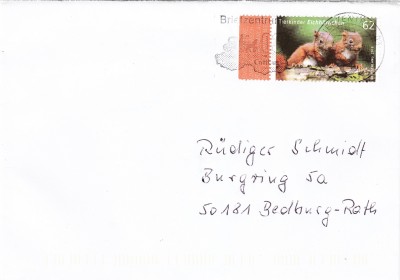 Briefzentrum
62
Rüdiger Schmidt
Burgring 5a
50181 Bedburg-Rath